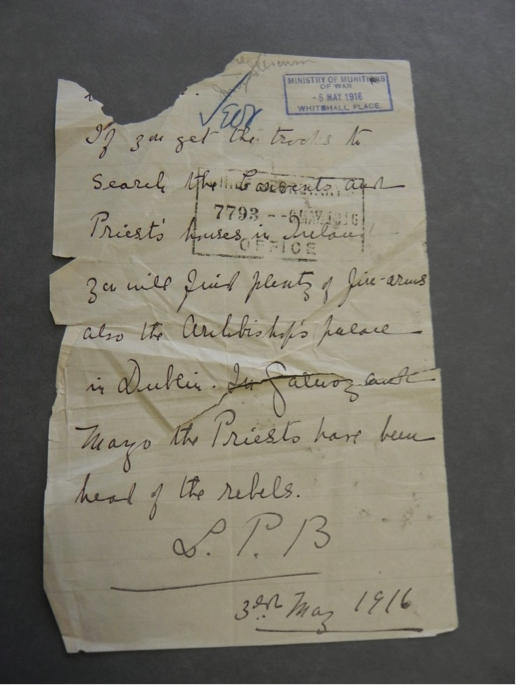 MINISTRY OF MUNITIONS
OF WAR
- 5 MAY 1916
WHITEHALL PLACE.
If you get the troops to
search the Convents and
Priest's houses in Ireland
7793 -- 6 MAY 1916
OFFICE
you will find plenty of fire-arms
also the Archbishop's palace
in Dublin. In Galway and
Mayo the Priests have been
head of the rebels.
L. P. B
3rd May 1916